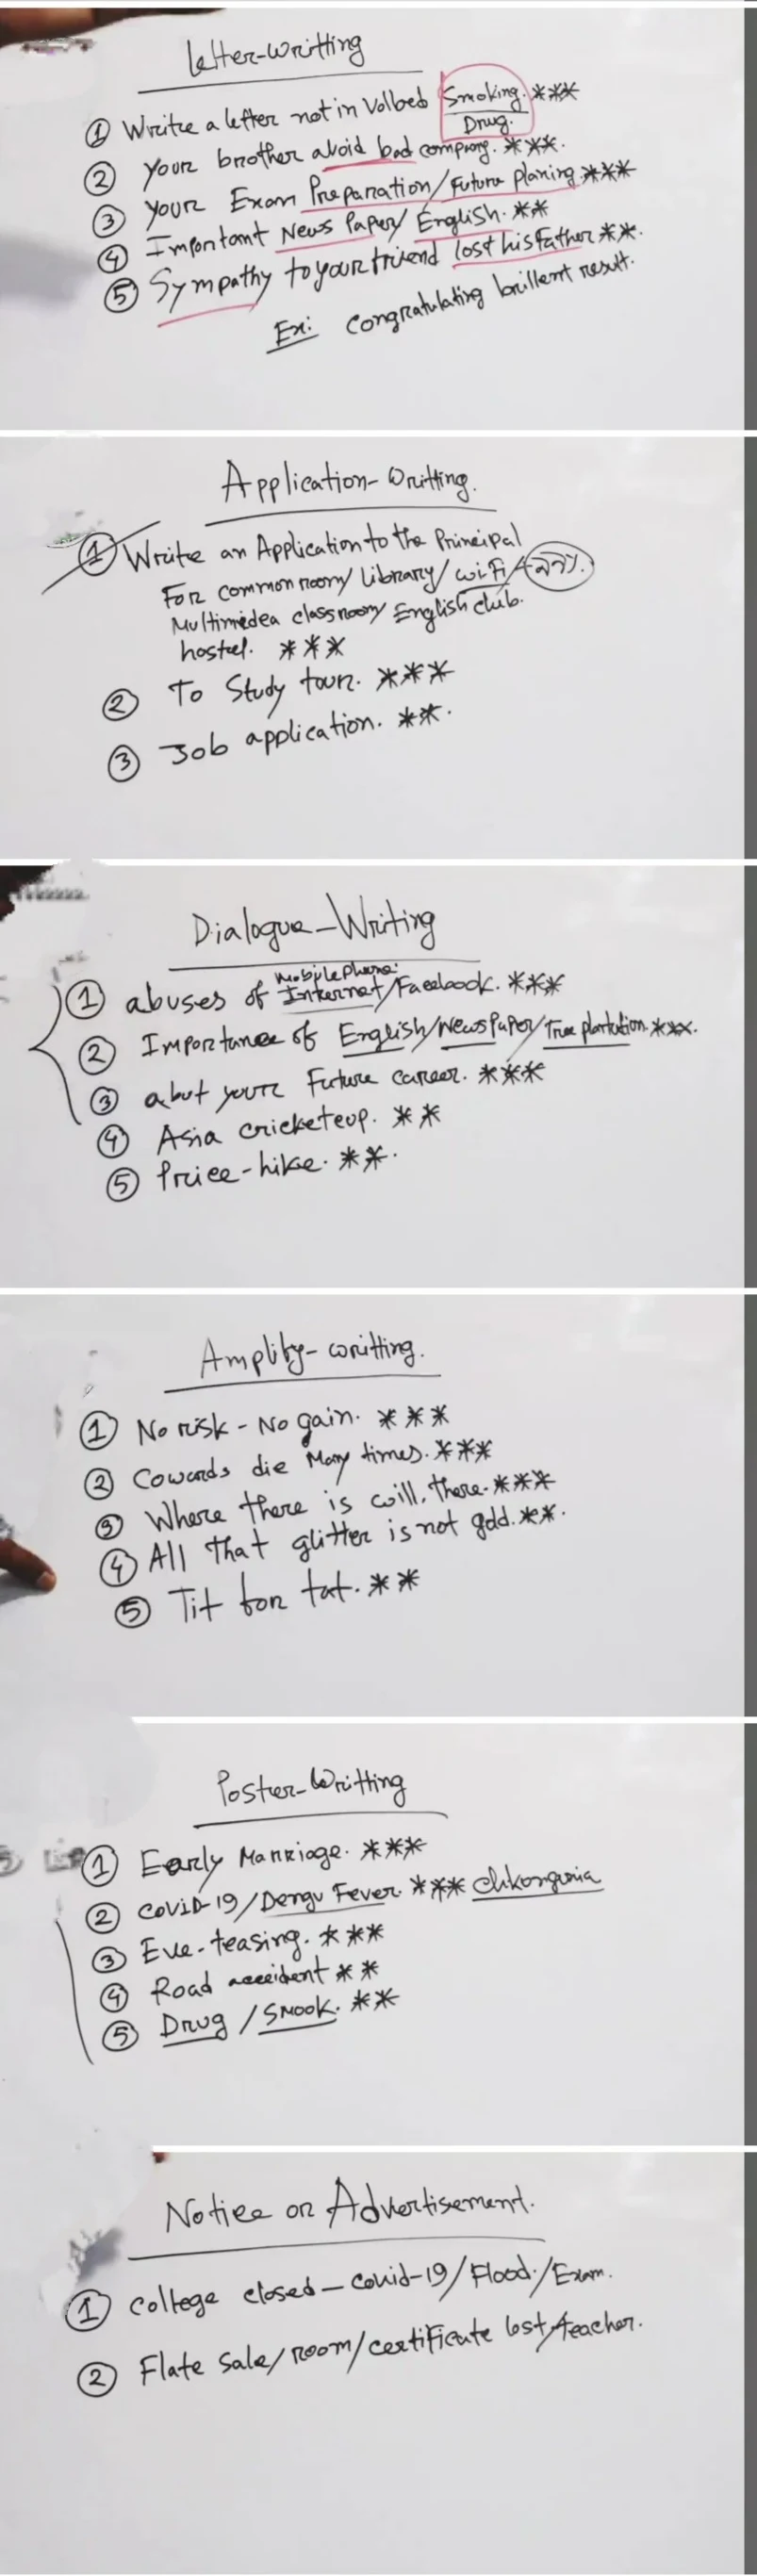 Letter-writting
① Write a letter not in Volbed Smoking. ***
Drug.
② your brother avoid bad compnay. ***.
③ your Exam Preparation/Future planing ***
④ Important News Paper/English. **
⑤ Sympathy to your friend lost his Father **.
Ex: Congratulating brillent result.
Application-writting.
① Write an Application to the Principal
For common room/ library/ wi-Fi/
Multimidea classroom/ English club.
hostel. ***
② To Study tour. ***
③ Job application. **.
Dialogue-Writing
mobile phone.
① abuses of Internet/Facebook. ***
② Importance of English/News Paper/Tree plantation. ***.
③ abut your Future career. ***
④ Asia cricketcup. **
⑤ Price-hike. **.
Amplify-writting.
① No risk - No gain. ***
② Cowards die Many times. ***
③ Where there is will, there. ***
④ All that glitter is not gold. **.
⑤ Tit for tat. **
Poster-Writting
① Early Marriage. ***
② COVID-19/Dengu Fever. *** chikongunia
③ Eve-teasing. ***
④ Road accident **
⑤ Drug / Smook. **
Notice or Advertisement.
① College closed - Covid-19/Flood./Exam.
② Flate Sale/room/certificate lost/teacher.